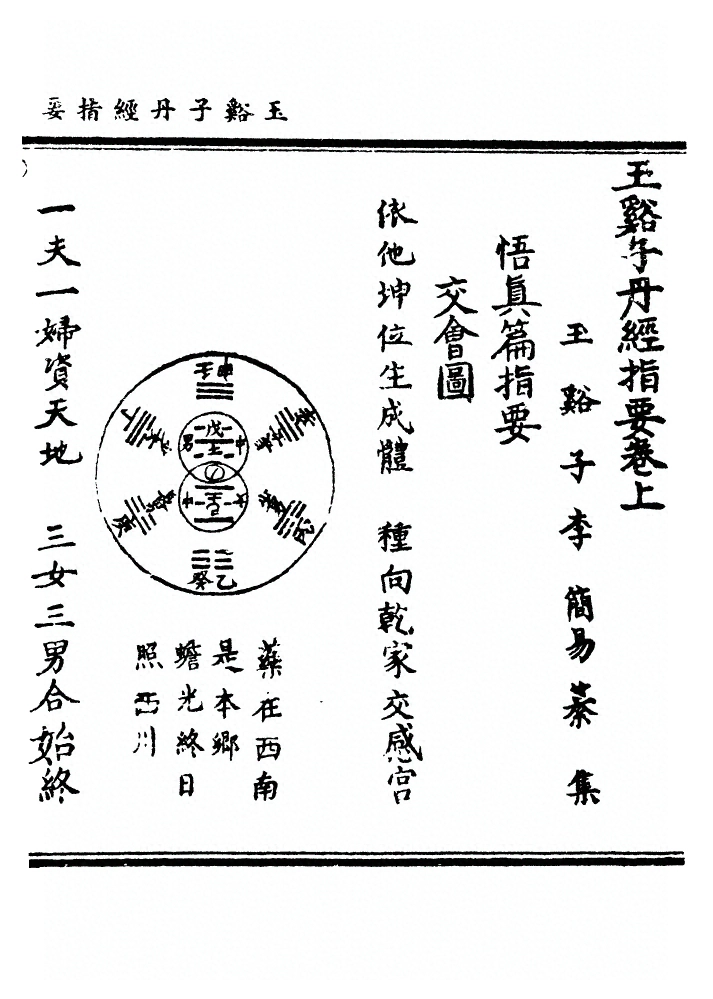 玉谿子丹經指要
玉谿子丹經指要卷上
玉谿子李簡易纂集
悟眞篇指要
交會圖
依他坤位生成體 種向乾家交感宮
甲壬
戊
土
男
中
己
女
中
乙癸
丁
庚
藥在西南
是本鄉
蟾光終日
照西川
一夫一婦資天地 三女三男合始終